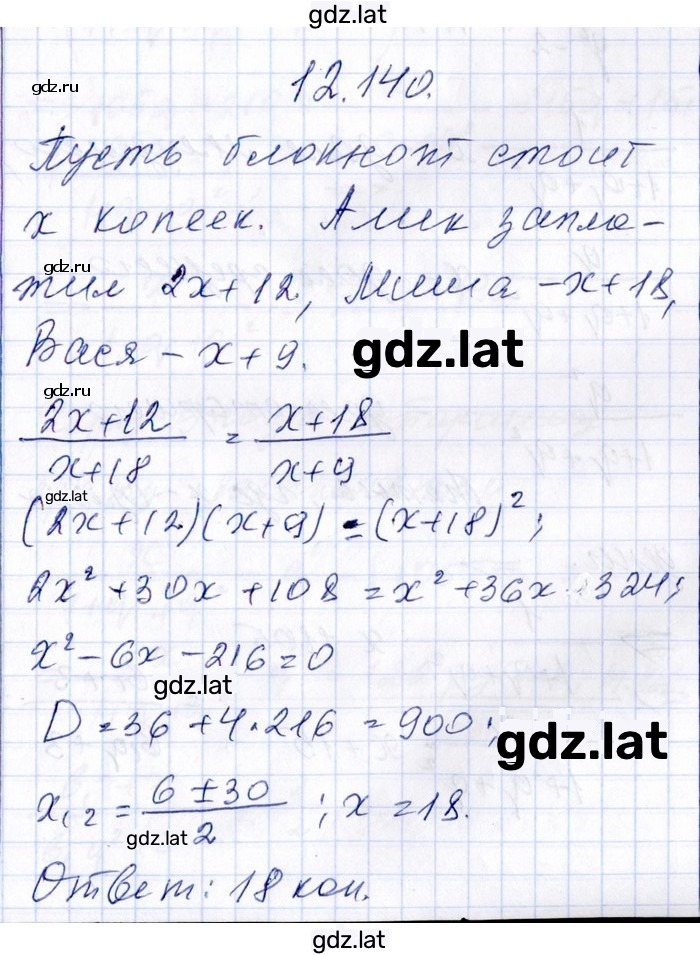 gdz.lat
12.140.
gdz.ru
Пусть блокнот стоит
x копеек. Алик запла-
тил 2x+12, Миша - x+18,
Вася - x+9.
gdz.lat
gdz.ru
(2x+12)/(x+18) = (x+18)/(x+9)
gdz.lat
(2x+12)(x+9) = (x+18)²;
2x²+30x+108 = x²+36x 324;
x²-6x-216=0
gdz.lat
D=36+4·216=900;
gdz.lat
x₁,₂ = (6±30)/2 ; x=18.
gdz.lat
Ответ: 18 коп.
gdz.lat